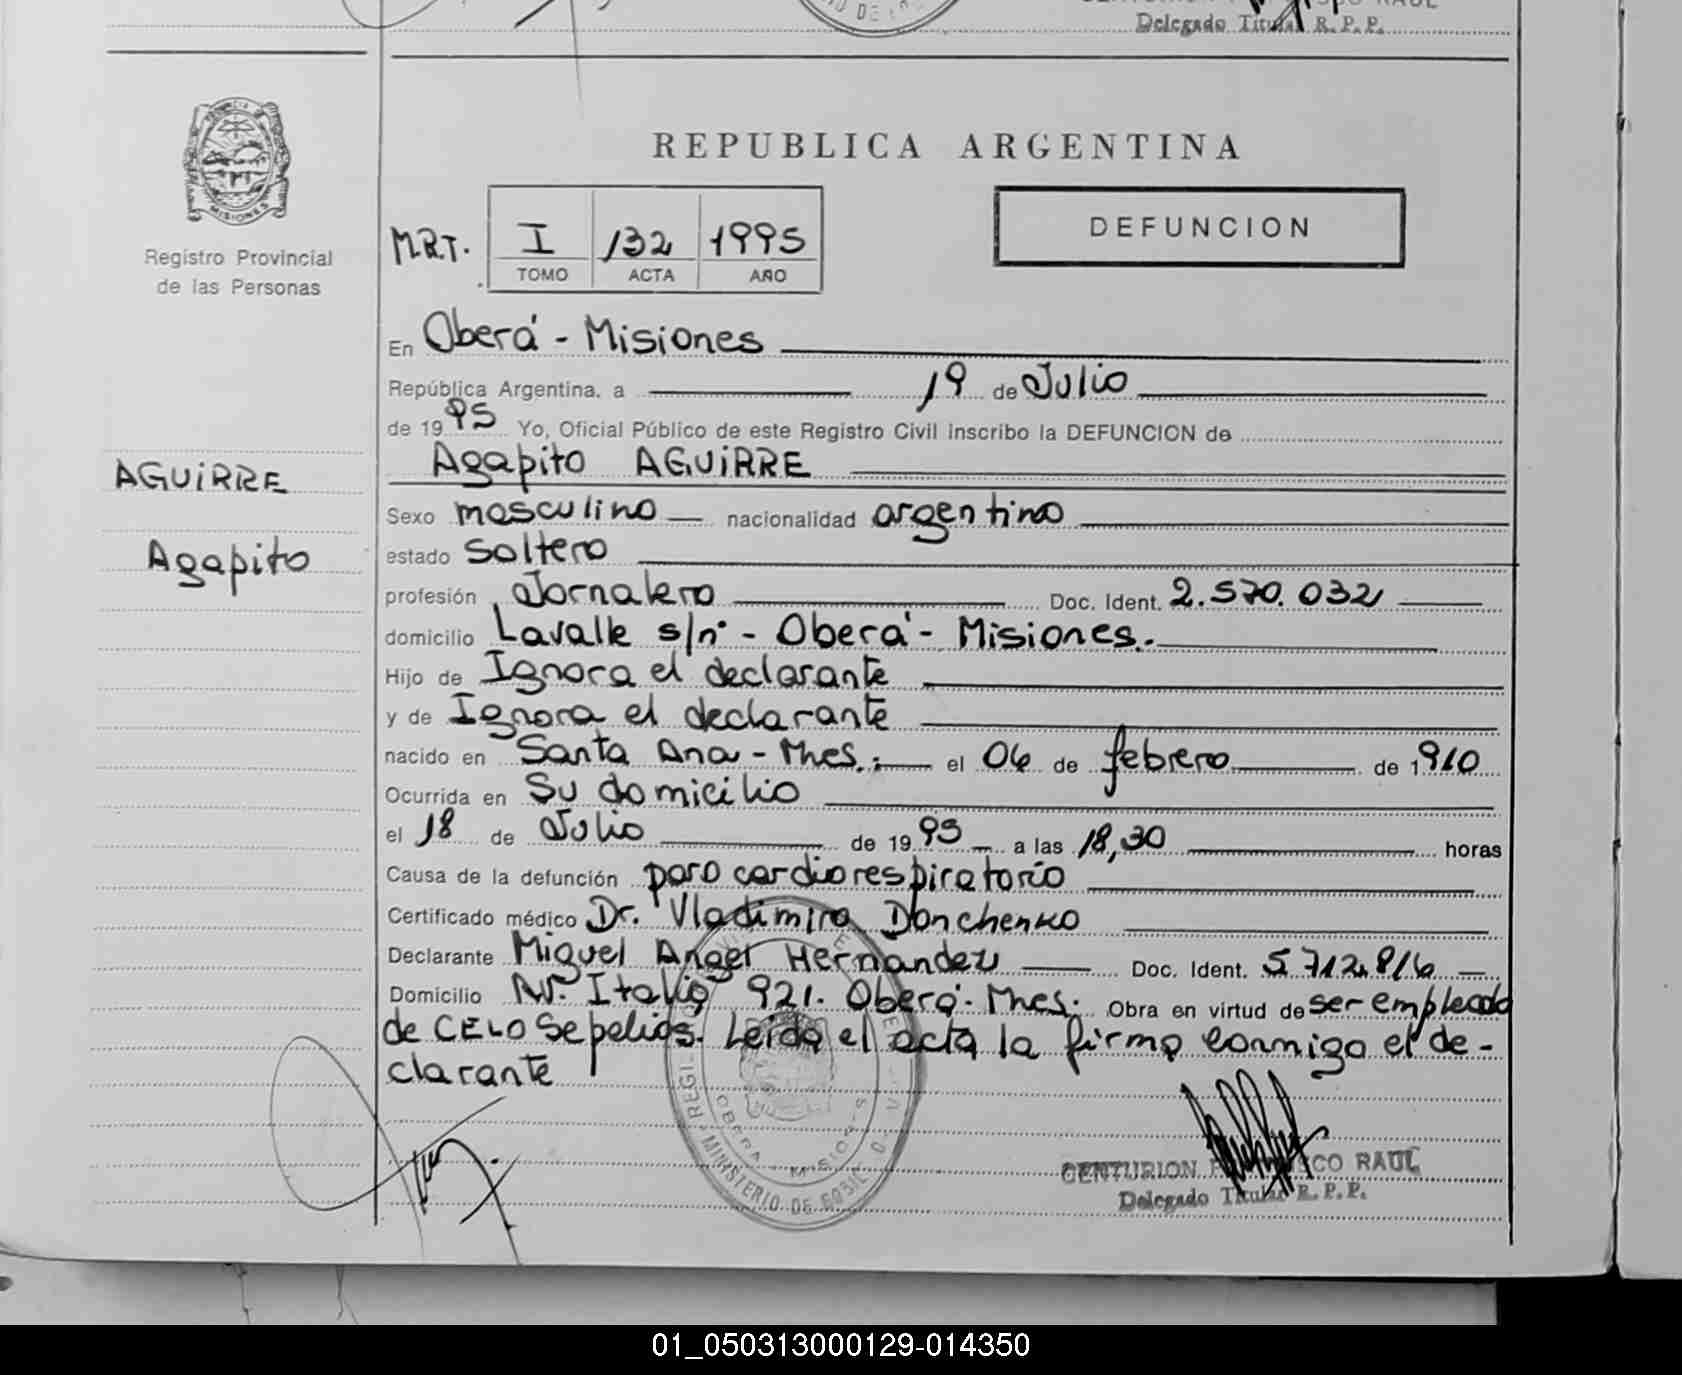 Delegado Titular R. P. P.
PROVINCIA DE
MISIONES
Registro Provincial
de las Personas
REPUBLICA ARGENTINA
M.R.T. I 132 1995
TOMO ACTA AÑO
DEFUNCION
En Oberá - Misiones
República Argentina, a 19 de Julio
de 1995 Yo, Oficial Público de este Registro Civil inscribo la DEFUNCION de
Agapito AGUIRRE
AGUIRRE
Agapito
Sexo masculino nacionalidad argentino
estado Soltero
profesión Jornalero Doc. Ident. 2.570.032
domicilio Lavalle s/n° - Oberá - Misiones.
Hijo de Ignora el declarante
y de Ignora el declarante
nacido en Santa Ana - Mnes.; el 06 de febrero de 1910
Ocurrida en Su domicilio
el 18 de Julio de 1995 a las 18,30 horas
Causa de la defunción paro cardiorespiratorio
Certificado médico Dr. Vladimiro Donchenko
Declarante Miguel Angel Hernandez Doc. Ident. 5.712.816
Domicilio Av. Italia 921. Oberá - Mnes. Obra en virtud de ser empleado
de CELO Sepelios. Leida el acta la firma conmigo el de-
clarante
OBERA - MISIONES
MINISTERIO DE GOBIE
CENTURION FRANCISCO RAUL
Delegado Titular R. P. P.
01_050313000129-014350